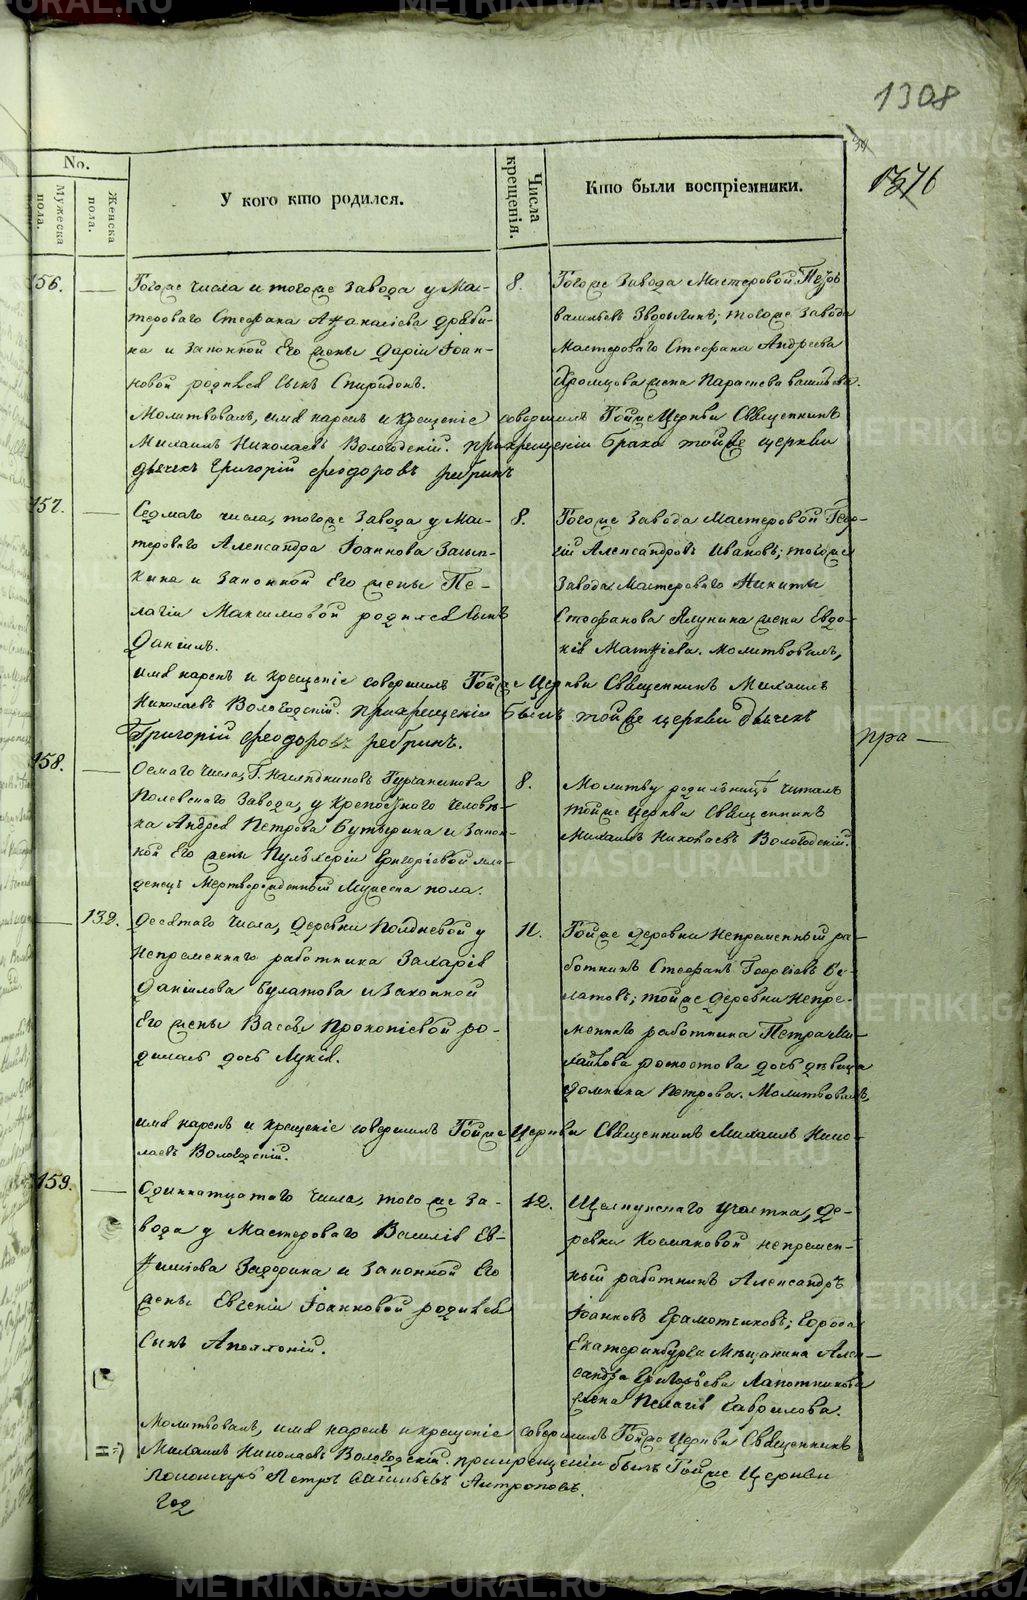 1308
1376
No.
Мужеска пола.
Женска пола.
У кого кто родился.
Числа крещенія.
Кто были воспріемники.
156.
Тогоже числа и тогоже завода у Мас-
тероваго Стефана Аѳанасіева
на и законной Его жены Даріи Іоан-
новой родился сынъ Спиридонъ.
8.
Тогоже завода Мастеровой Петръ
Васильевъ; тогоже завода
Мастероваго Стефана Андреева
Хромцова жена Параскева Васильева.
Молитвовалъ, имя нарекъ и крещеніе совершилъ Тойже Церкви Священникъ
Михаилъ Николаевъ Вологодскій. при крещеніи тойже церкви
дьячекъ Григорій Феодоровъ
157.
Седмаго числа, тогоже завода у Мас-
тероваго Александра Іоаннова
и законной Его жены Пе-
лагіи Максимовой родился сынъ
Даніилъ.
8.
Тогоже завода Мастеровой Геор-
гій Александровъ Ивановъ; тогоже
завода Мастероваго Никиты
Стефанова Ялунина жена Евдо-
кія Матѳіева. Молитвовалъ,
имя нарекъ и крещеніе совершилъ Тойже Церкви Священникъ Михаилъ
Николаевъ Вологодскій. при крещеніи былъ тойже церкви дьячекъ
Григорій Феодоровъ
158.
Осмаго числа, Г. Наследниковъ Турчанинова
Полевскаго завода, у крепостного человѣ-
ка Андрея Петрова Бутырина и закон-
ной Его жены Пульхеріи Григоріевой мла-
денецъ мертворожденный мужеска пола.
8.
Молитву родильницѣ читалъ
тойже церкви Священникъ
Михаилъ Николаевъ Вологодскій.
пра —
132.
Десятаго числа, деревни Полдневой у
непременнаго работника Захарія
Даніилова Булатова и законной
Его жены Вассы Прокопіевой ро-
дилась дочь Лукія.
11.
Тойже деревни непременный ра-
ботникъ Стефанъ Георгіевъ Бу-
латовъ; тойже деревни непре-
меннаго работника Петра Ми-
хайлова дочь девица
Домника Петрова. Молитвовалъ,
имя нарекъ и крещеніе совершилъ Тойже Церкви Священникъ Михаилъ Нико-
лаевъ Вологодскій.
159.
Одиннатцатаго числа, тогоже за-
вода у Мастероваго Василія Ев-
ѳиміева Задорина и законной Его
жены Евгеніи Іоанновой родился
сынъ Аполлоній.
12.
Щелкунскаго участка, де-
ревни Космаковой непремен-
ный работникъ Александръ
Іоанновъ Грамотчиковъ; города
Екатеринбурга Мѣщанина Алек-
сандра Григорьева Лапотникова
жена Пелагія Гаврилова.
Молитвовалъ, имя нарекъ и крещеніе совершилъ Тойже Церкви Священникъ
Михаилъ Николаевъ Вологодскій. при крещеніи былъ Тойже Церкви
Пономарь Петръ Васильевъ Антроповъ.
METRIKI.GASO-URAL.RU